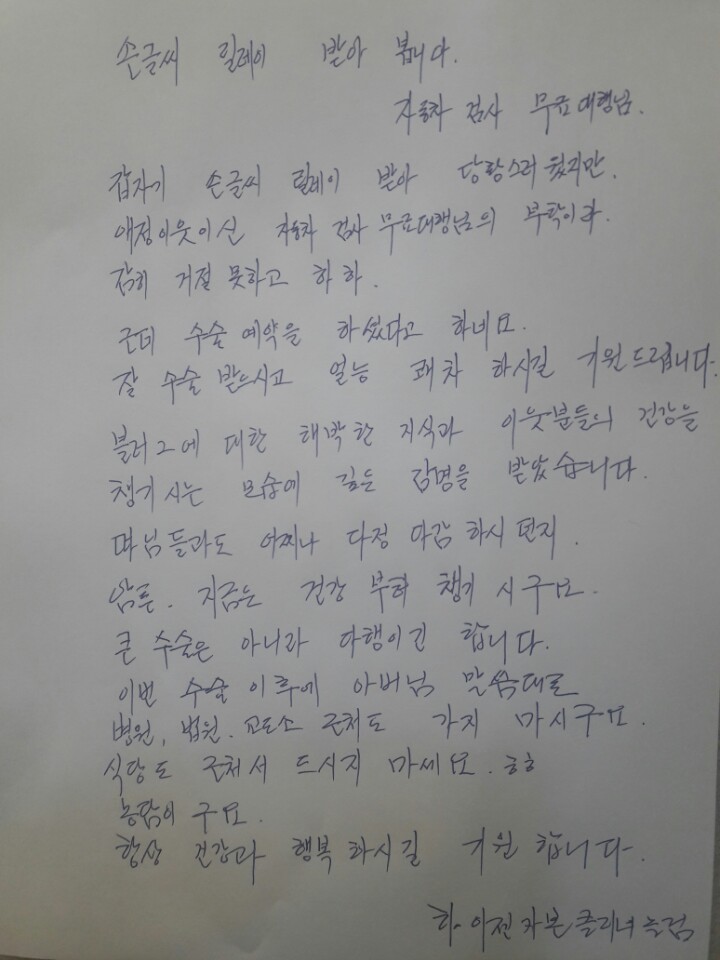 손글씨 릴레이 받아 봅니다.
자동차 검사 무료대행님.
갑자기 손글씨 릴레이 받아 당황스러웠지만.
애정이웃이신 자동차 검사 무료대행님의 부탁이라.
감히 거절 못하고 하하.
근데 수술 예약을 하셨다고 하네요.
잘 수술 받으시고 얼능 쾌차 하시길 기원드립니다.
블러그에 대한 해박한 지식과 이웃분들의 건강을
챙기시는 모습에 깊은 감명을 받았습니다.
따님들과도 어찌나 다정 다감 하시던지.
암튼. 지금은 건강 부터 챙기시구요.
큰 수술은 아니라 다행이긴 합니다.
이번 수술 이후에 아버님 말씀대로
병원, 법원. 교도소 근처도 가지 마시구요.
식당도 근처서 드시지 마세요. ㅎㅎ
농담이구요.
항상 건강과 행복 하시길 기원 합니다.
카본클리닝